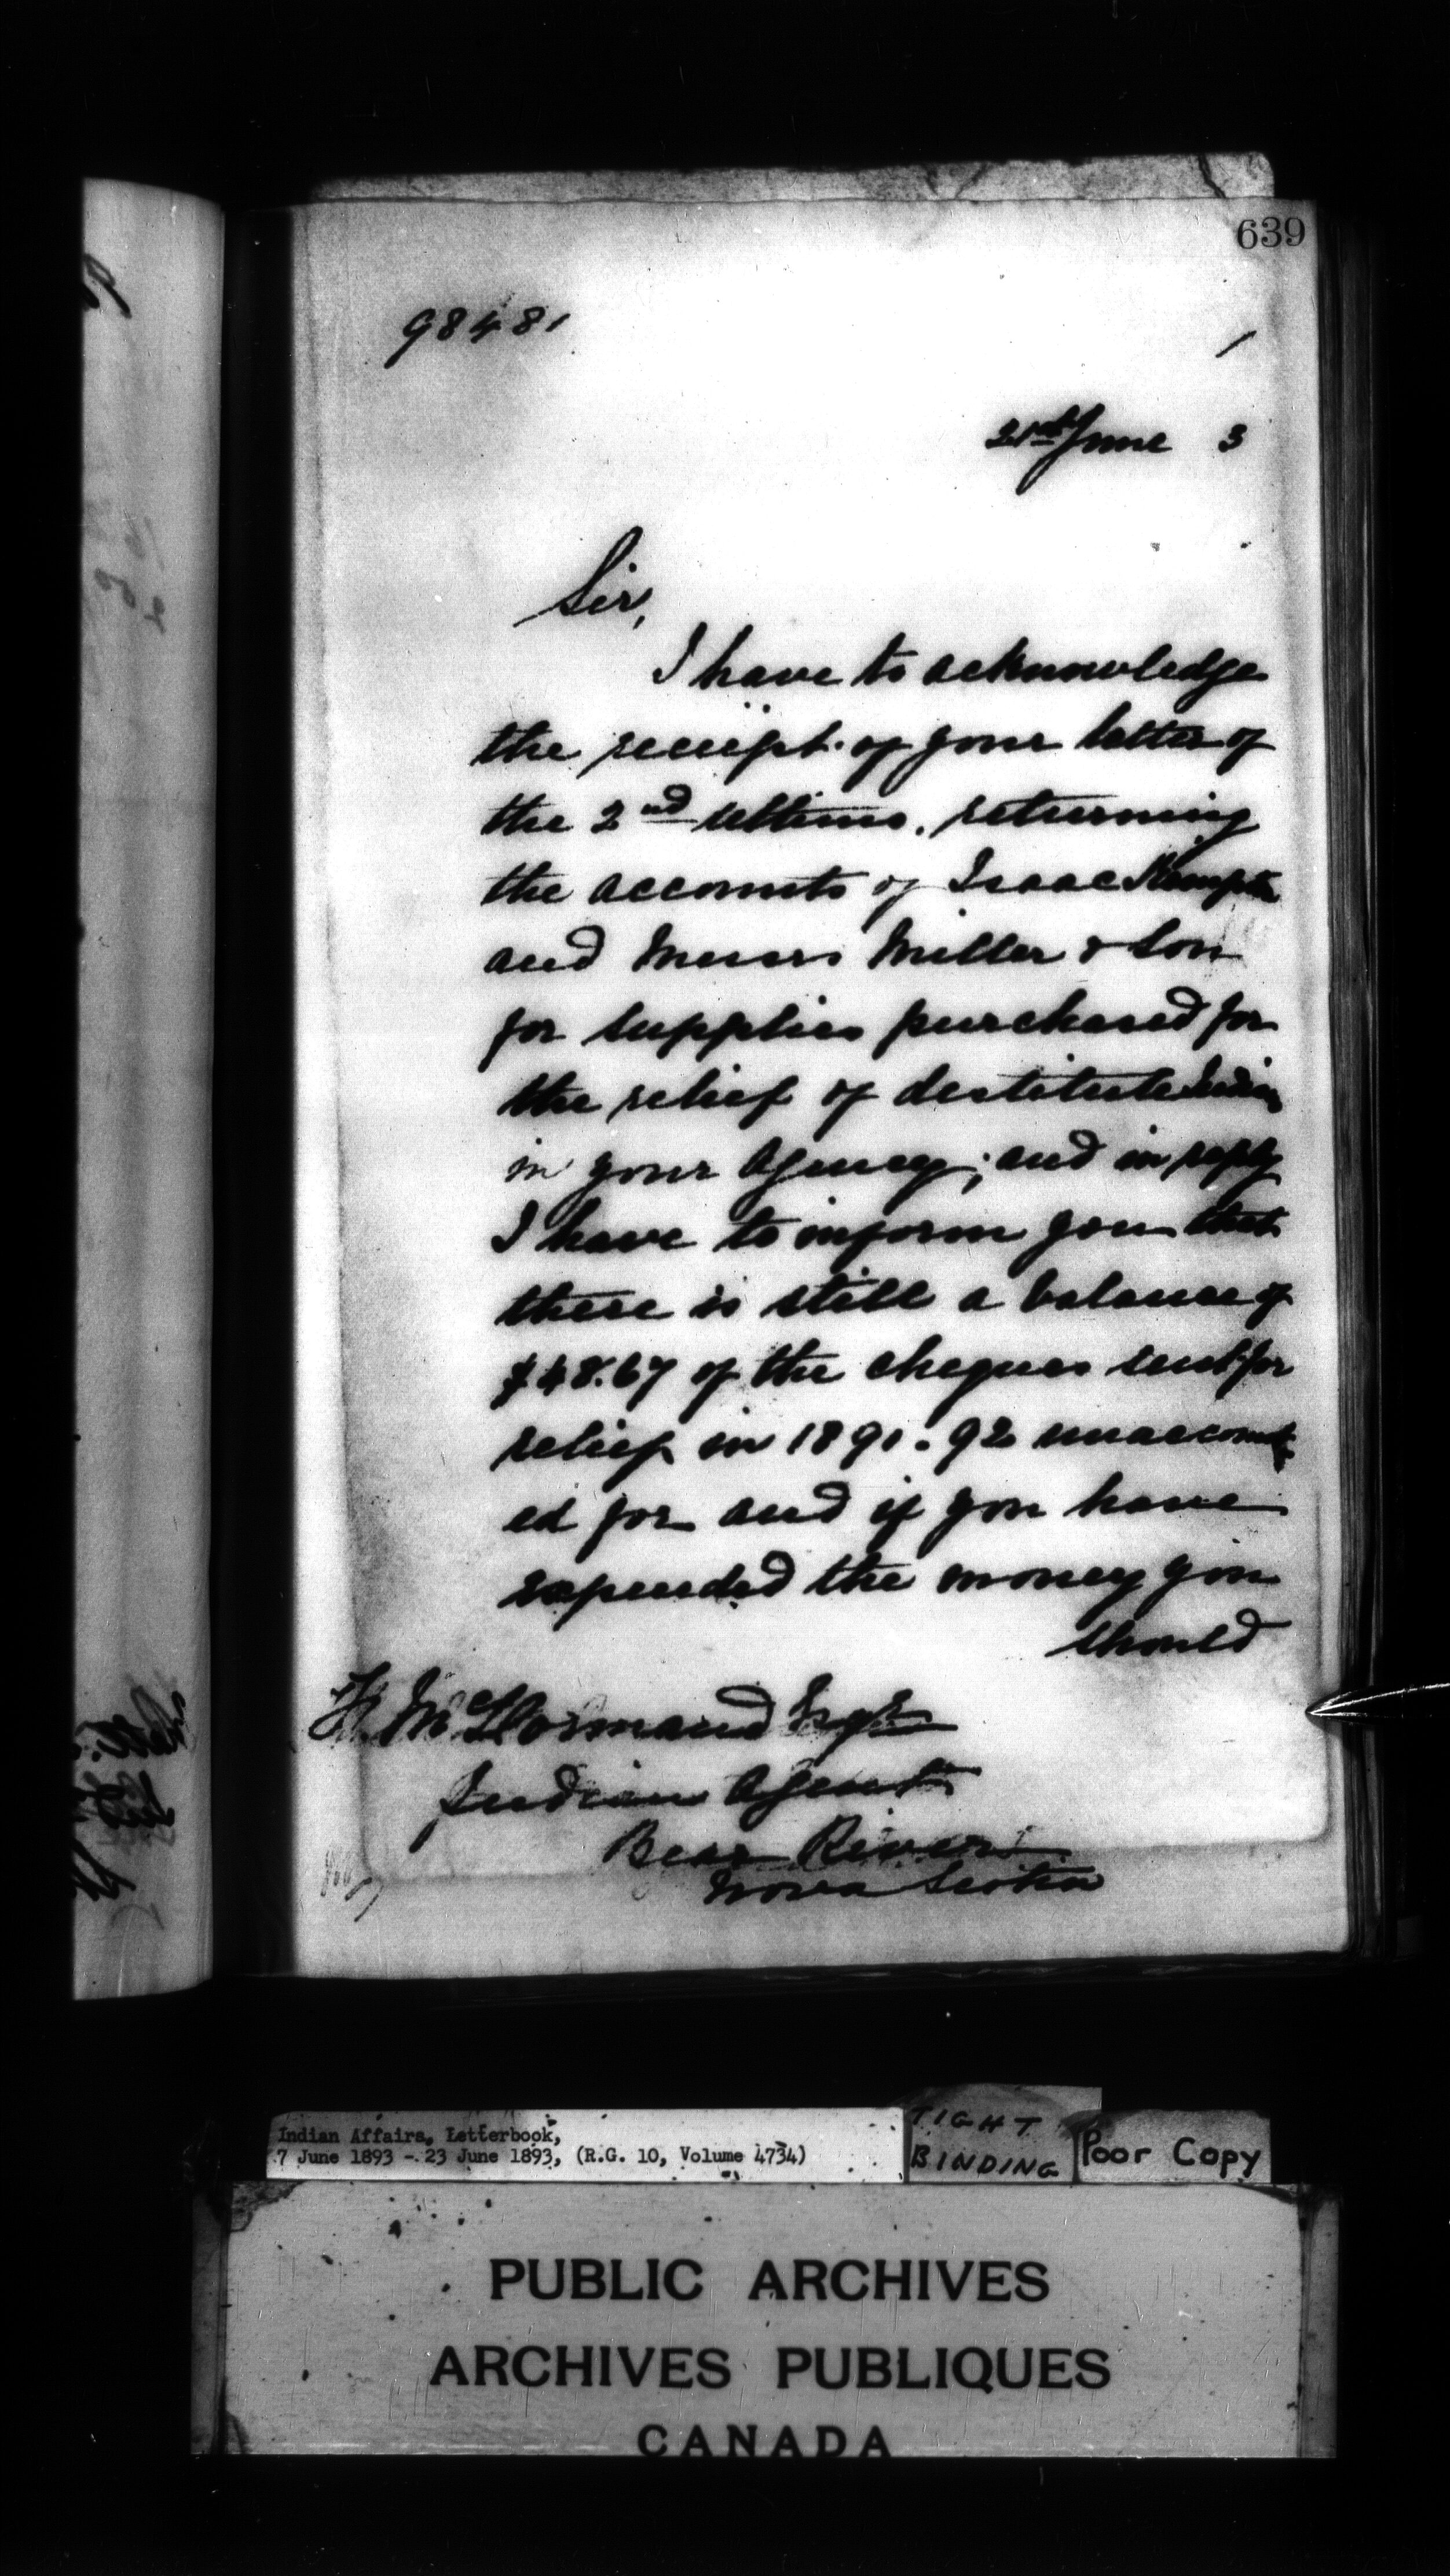 639
98481
1
21st June 3
Sir,
I have to acknowledge
the receipt of your letter of
the 2nd ultimo, returning
the accounts of Isaac Kempton
and Messrs Miller & Son
for supplies purchased for
the relief of destitute Indians
in your Agency; and in reply
I have to inform you that
there is still a balance of
$48.67 of the cheques sent for
relief in 1891.92 unaccount-
ed for and if you have
expended the money you
should
F. McDormand Esqre
Indian Agent
Bear River
Nova Scotia
Indian Affairs, Letterbook,
7 June 1893 - 23 June 1893, (R.G. 10, Volume 4734)
TIGHT
BINDING
Poor Copy
PUBLIC ARCHIVES
ARCHIVES PUBLIQUES
CANADA